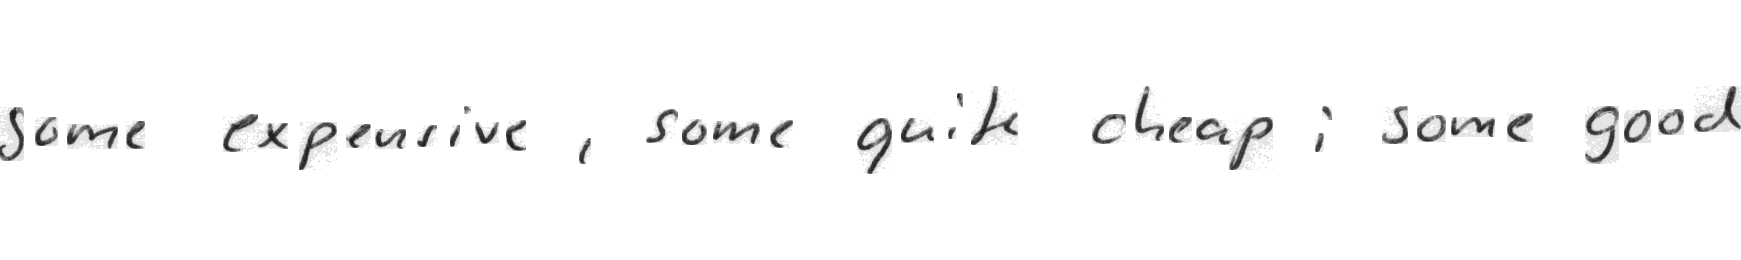 some expensive, some quite cheap; some good